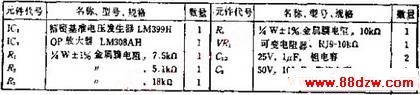 元件代号 名称、型号、规格 数量 元件代号 名称、型号、规格 数量
IC₁ 精密基准电压发生器 LM399H 1 R₄ ¼W±1%金属膜电阻,10kΩ 1
IC₂ OP放大器 LM308AH 1 VR₁ 可变电阻器、RJ9-10kΩ 1
R₁ ¼W±1%金属膜电阻,7.5kΩ 1 25V,1μF,钽电容 2
R₂ 〃 5.1kΩ 1 50V,
R₃ 〃 18kΩ 1
www.88dzw.com